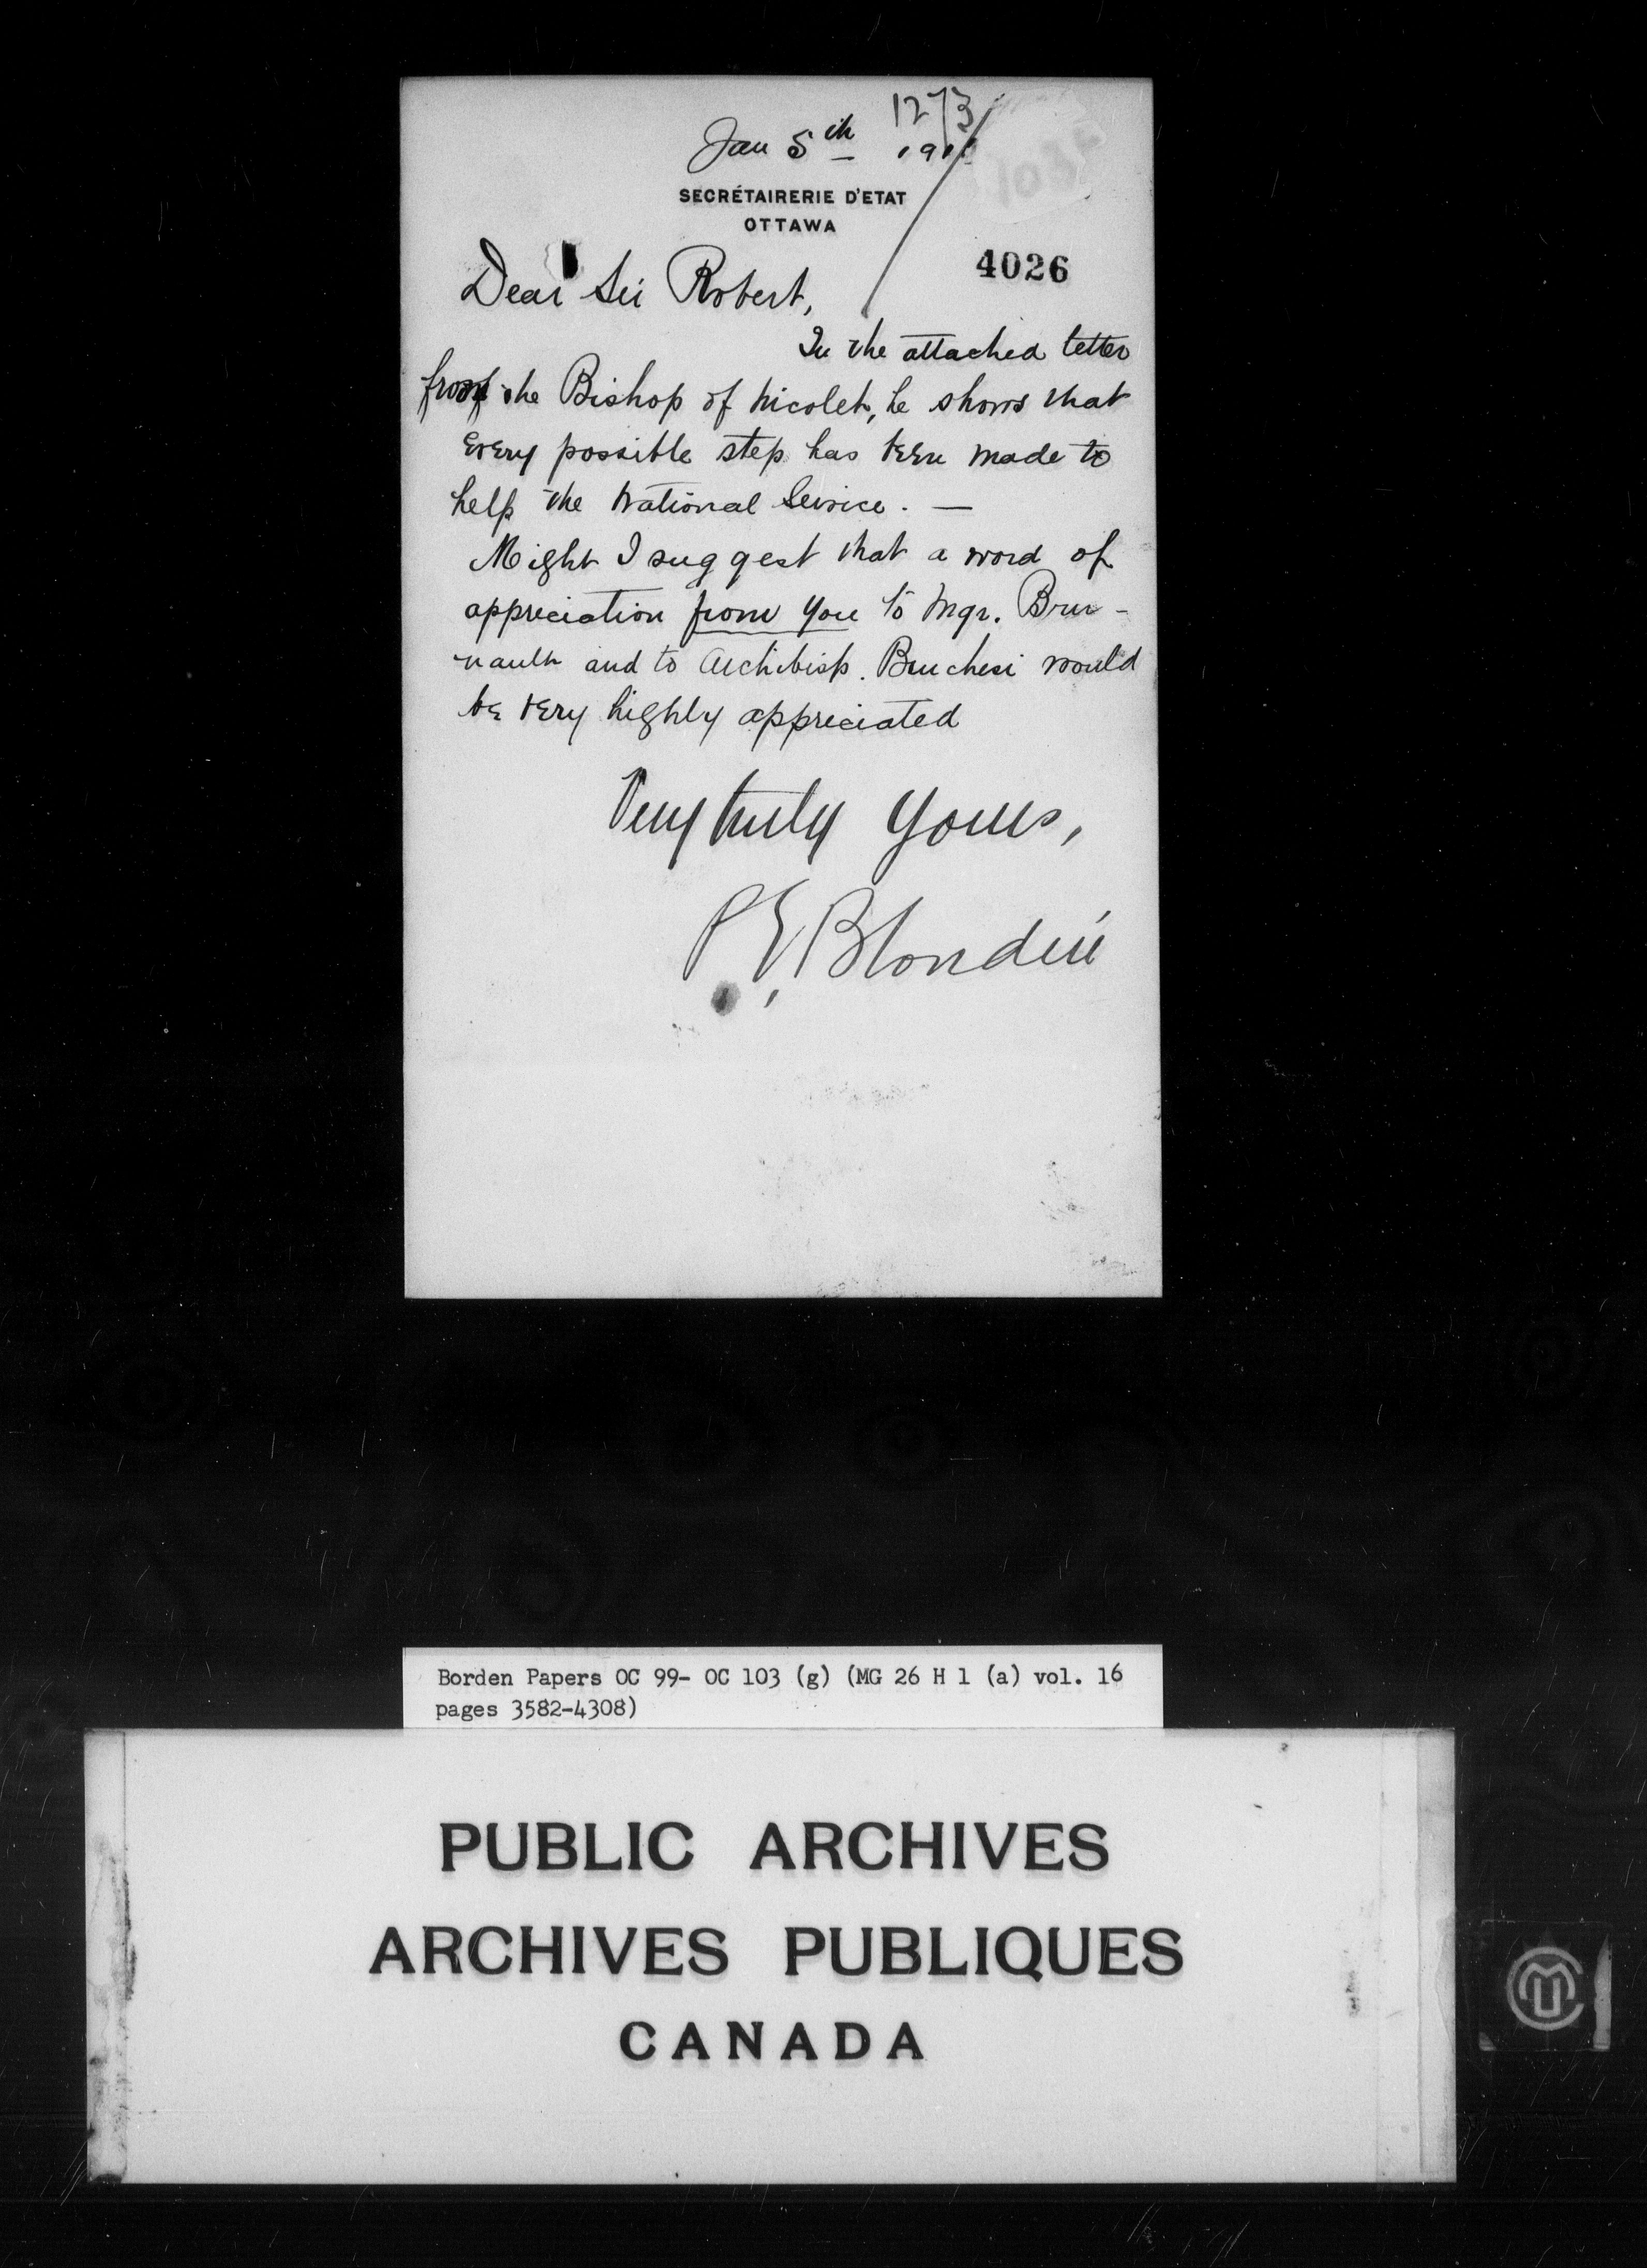 1273
Jan 5th 191
SECRÉTAIRERIE D'ETAT
OTTAWA
103
4026
Dear Sir Robert,
In the attached letter
from the Bishop of Nicolet, he shows that
every possible step has been made to
help the National Service. —
Might I suggest that a word of
appreciation from you to Mgr. Bru-
nault and to Archbisp. Bruchesi would
be very highly appreciated
Very truly yours,
P. E. Blondin
Borden Papers OC 99- OC 103 (g) (MG 26 H 1 (a) vol. 16
pages 3582-4308)
PUBLIC ARCHIVES
ARCHIVES PUBLIQUES
CANADA